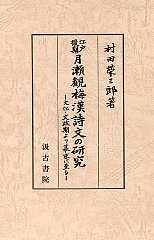 村田榮三郎著
江戸後期月瀬観梅漢詩文の研究
―文化・文政期より幕末に至る―
汲古書院